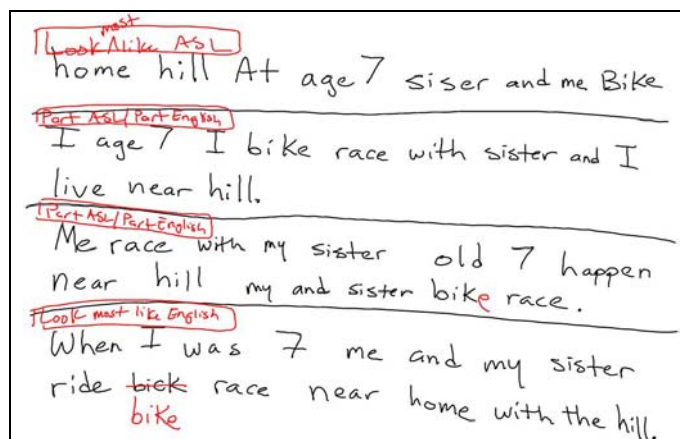 most
Look Alike ASL
home hill At age 7 siser and me Bike
Part ASL/Part English
I age 7 I bike race with sister and I
live near hill.
Part ASL/Part English
Me race with my sister old 7 happen
near hill my and sister bike race.
Look most like English
When I was 7 me and my sister
ride bick race near home with the hill.
bike